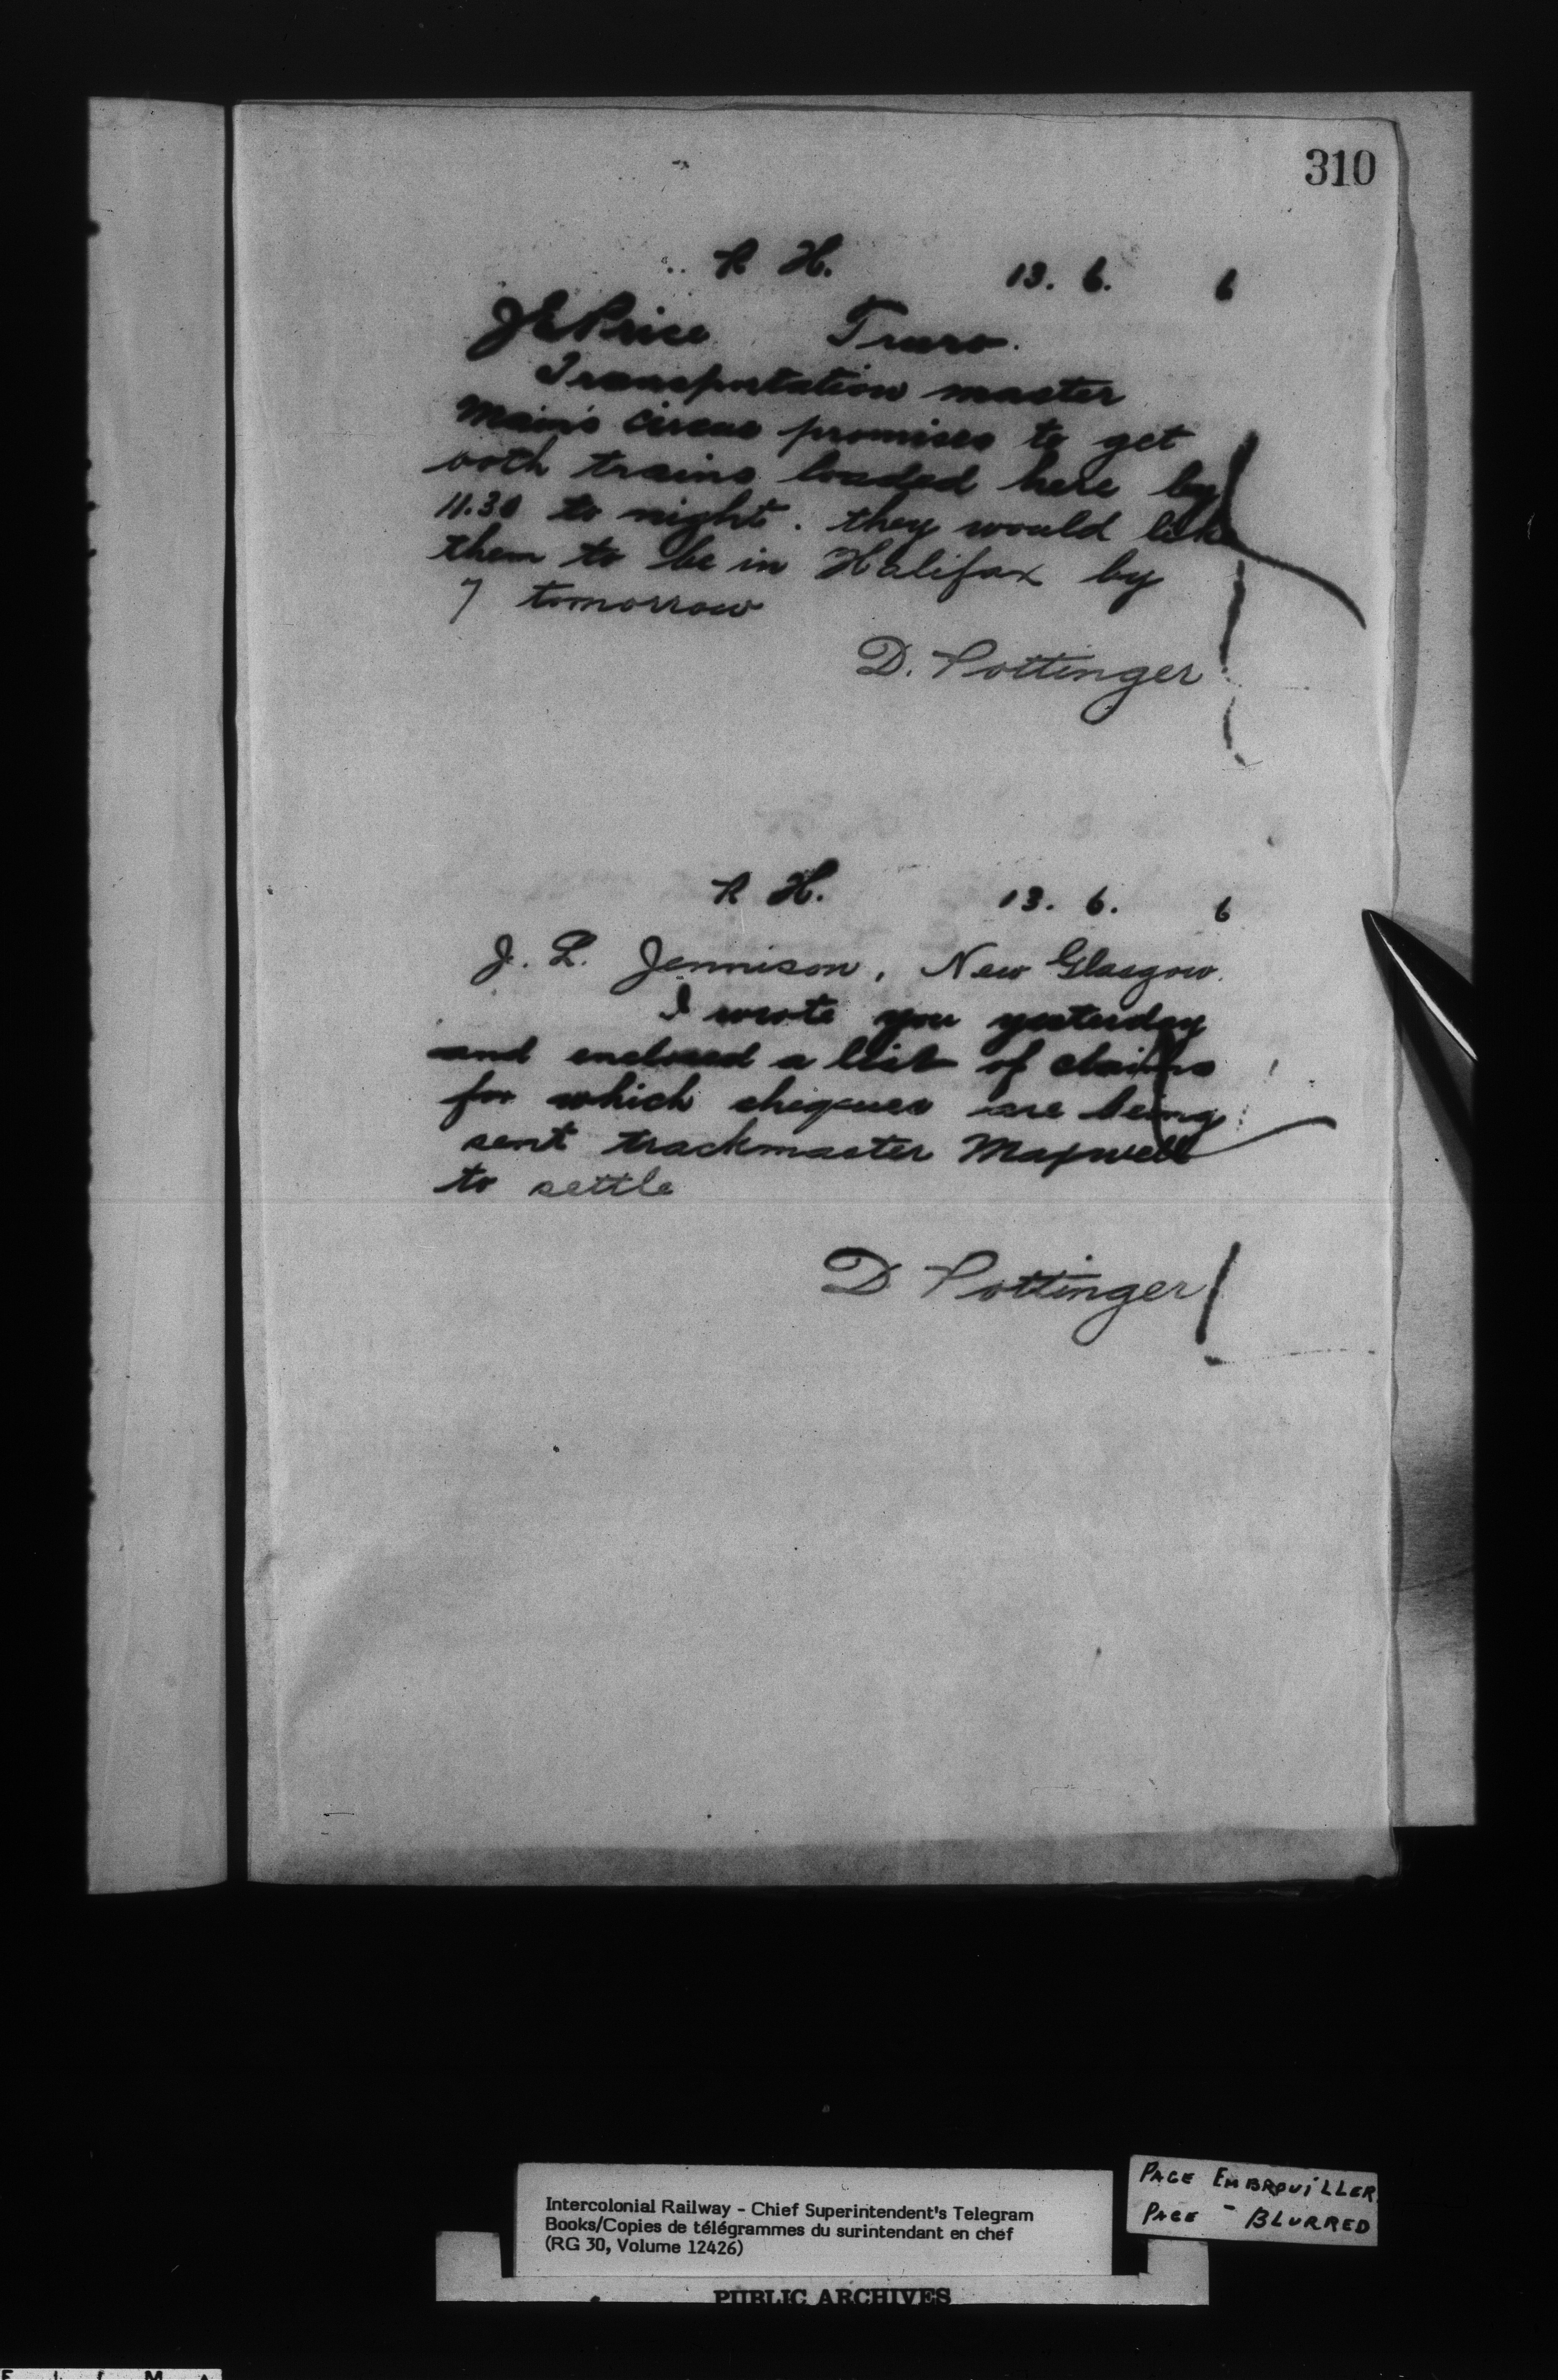 310
R H. 13. 6. 6
J E Price Truro.
Transportation master
Main's circus promises to get
both trains loaded here by
11.30 to night. they would like
them to be in Halifax by
7 tomorrow
D. Pottinger
R H. 13. 6. 6
J. L. Jennison, New Glasgow.
I wrote you yesterday
and enclosed a list of claims
for which cheques are being
sent trackmaster Maxwell
to settle
D Pottinger
PAGE EMBROUILLER
PAGE - BLURRED
Intercolonial Railway - Chief Superintendent's Telegram
Books/Copies de télégrammes du surintendant en chef
(RG 30, Volume 12426)
PUBLIC ARCHIVES